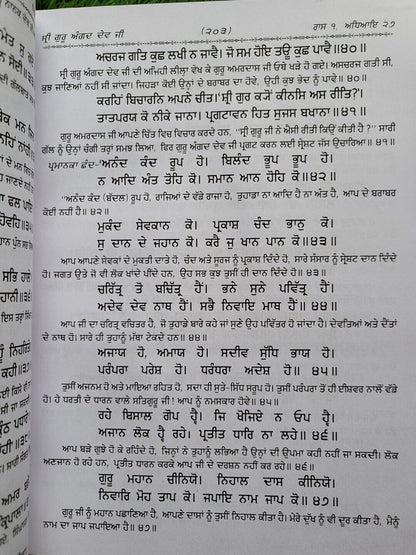 ਸ੍ਰੀ ਗੁਰੂ ਅੰਗਦ ਦੇਵ ਜੀ (੨੦੩) ਰਾਸ ੧, ਅਧਿਆਇ ੨੭
ਅਚਰਜ ਗਤਿ ਕੁਛ ਲਖੀ ਨ ਜਾਵੈ। ਜੋ ਸਮ ਹੋਇ ਤਊ ਕੁਛ ਪਾਵੈ॥੪੦॥
ਸ੍ਰੀ ਗੁਰੂ ਅੰਗਦ ਦੇਵ ਜੀ ਦੀ ਅਜਿਹੀ ਲੀਲਾ ਵੇਖ ਕੇ ਗੁਰੂ ਅਮਰਦਾਸ ਜੀ ਓਥੇ ਖੜੇ ਹੋ ਗਏ। ਅਸਚਰਜ ਗਤੀ ਸੀ,
ਕੁਛ ਜਾਣਿਆਂ ਨਹੀਂ ਸੀ ਜਾਂਦਾ। ਜਿਹੜਾ ਕੋਈ ਉਨ੍ਹਾਂ ਦੇ ਬਰਾਬਰ ਦਾ ਹੋਵੇ, ਉਹੀ ਕੁਛ ਭੇਦ ਨੂੰ ਪਾਵੇ॥੪੦॥
ਕਰਹਿੰ ਬਿਚਾਰਨਿ ਅਪਨੇ ਚੀਤ। 'ਸ੍ਰੀ ਗੁਰ ਕ੍ਯੋਂ ਕੀਨਸਿ ਅਸ ਰੀਤਿ?'।
ਤਾਤਪਰਯ ਕੋ ਨੀਕੇ ਜਾਨਾ। ਪ੍ਰਗਟਾਵਨ ਹਿਤ ਸੁਜਸ ਬਖਾਨਾ॥੪੧॥
ਗੁਰੂ ਅਮਰਦਾਸ ਜੀ ਆਪਣੇ ਚਿੱਤ ਵਿਚ ਵਿਚਾਰ ਕਰਦੇ ਹਨ, ''ਸ੍ਰੀ ਗੁਰੂ ਜੀ ਨੇ ਐਸੀ ਰੀਤੀ ਕਿਉਂ ਕੀਤੀ ਹੈ?'' ਸਾਰੀ
ਗੱਲ ਨੂੰ ਉਨ੍ਹਾਂ ਚੰਗੀ ਤਰ੍ਹਾਂ ਸਮਝ ਲਿਆ, ਫਿਰ ਗੁਰੂ ਅੰਗਦ ਦੇਵ ਜੀ ਪ੍ਰਗਟ ਕਰਨ ਲਈ ਸ੍ਰੇਸ਼ਟ ਜੱਸ ਉਚਾਰਿਆ॥੪੧॥
ਪ੍ਰਮਾਨਕਾ ਛੰਦ-'ਅਨੰਦ ਕੰਦ ਰੂਪ ਹੋ। ਬਿਲੰਦ ਭੂਪ ਭੂਪ ਹੋ।
ਨ ਆਦਿ ਅੰਤ ਤੋਹਿ ਕੋ। ਸਮਾਨ ਆਨ ਹੋਹਿ ਕੋ॥੪੨॥
''ਅਨੰਦ ਕੰਦ (ਬੱਦਲ) ਰੂਪ ਹੋ, ਰਾਜਿਆਂ ਦੇ ਵੱਡੇ ਰਾਜਾ ਹੋ, ਤੁਹਾਡਾ ਨਾ ਆਦਿ ਹੈ ਨਾ ਅੰਤ ਹੈ, ਆਪ ਦੇ ਬਰਾਬਰ
ਕੋਈ ਨਹੀਂ ਹੈ॥੪੨॥
ਮੁਕੰਦ ਸੇਵਕਾਨ ਕੋ। ਪ੍ਰਕਾਸ਼ ਚੰਦ ਭਾਨੁ ਕੋ।
ਸੁ ਦਾਨ ਦੇ ਜਹਾਨ ਕੋ। ਕਰੈ ਜੁ ਖਾਨ ਪਾਨ ਕੋ॥੪੩॥
ਆਪ ਆਪਣੇ ਸੇਵਕਾਂ ਦੇ ਮੁਕਤੀ ਦਾਤੇ ਹੋ, ਚੰਦ ਅਤੇ ਸੂਰਜ ਨੂੰ ਪ੍ਰਕਾਸ਼ ਦਿੰਦੇ ਹੋ, ਸਾਰੇ ਸੰਸਾਰ ਨੂੰ ਸ੍ਰੇਸ਼ਟ ਦਾਨ ਦਿੰਦੇ
ਹੋ। ਜਗਤ ਉਤੇ ਜੋ ਵੀ ਲੋਕ ਖਾਂਦੇ ਪੀਂਦੇ ਹਨ, ਉਹ ਸਭ ਕੁਛ ਤੁਸੀਂ ਹੀ ਦਾਨ ਦਿੰਦੇ ਹੋ॥੪੩॥
ਚਰਿੱਤ੍ਰ ਤੋ ਬਚਿੱਤ੍ਰ ਹੈਂ। ਭਨੇ ਸੁਨੇ ਪਵਿੱਤ੍ਰ ਹੈਂ।
ਅਦੇਵ ਦੇਵ ਨਾਥ ਹੈਂ। ਸਭੈ ਨਿਵਾਇ ਮਾਥ ਹੈਂ॥੪੪॥
ਆਪ ਜੀ ਦਾ ਚਰਿਤ੍ਰ ਵਚਿਤਰ ਹੈ, ਜੋ ਤੁਹਾਡੇ ਬਾਰੇ ਕਹੇ ਜਾਂ ਸੁਣੇ ਉਹ ਪਵਿੱਤਰ ਹੋ ਜਾਂਦਾ ਹੈ। ਦੇਵਤਿਆਂ ਅਤੇ ਦੈਂਤਾਂ
ਦੇ ਨਾਥ ਹੋ। ਸਾਰੇ ਹੀ ਤੁਹਾਨੂੰ ਮੱਥਾ ਟੇਕਦੇ ਹਨ॥੪੪॥
ਅਜਾਯ ਹੋ, ਅਮਾਯ ਹੋ। ਸਦੀਵ ਸੁੱਧਿ ਭਾਯ ਹੋ।
ਪਰੰਪਰਾ ਪਰੇਸ਼ ਹੋ। ਧਰੰਧਰਾ ਅਦੇਸ਼ ਹੋ॥੪੫॥
ਤੁਸੀਂ ਅਜਨਮ ਹੋ ਅਤੇ ਮਾਇਆ ਰਹਿਤ ਹੋ, ਸਦਾ ਹੀ ਸੁਤੇ-ਸਿੱਧ ਸਰੂਪ ਹੋ। ਤੁਸੀਂ ਪਰੰਪਰਾ ਤੋਂ ਹੀ ਈਸ਼ਵਰ ਨਾਲੋਂ ਵੱਡੇ
ਹੋ। ਹੇ ਧਰਤੀ ਦੇ ਧਾਰਨ ਵਾਲੇ ਸਤਿਗੁਰੂ ਜੀ! ਆਪ ਨੂੰ ਨਮਸਕਾਰ ਹੋਵੇ॥੪੫॥
ਰਹੇ ਬਿਸਾਲ ਗੋਪ ਹ੍ਵੈ। ਜਿ ਖੋਜਿਏ ਨ ਓਪ ਹ੍ਵੈ।
ਅਜਾਨ ਲੋਕ ਹ੍ਵੈ ਰਹੇ। ਪ੍ਰਤੀਤ ਧਾਰਿ ਨਾ ਲਹੇ॥੪੬॥
ਆਪ ਬੜੇ ਗੁਝੇ ਹੋ ਕੇ ਰਹਿੰਦੇ ਹੋ, ਜਿਨ੍ਹਾਂ ਨੇ ਤੁਹਾਨੂੰ ਲਭਿਆ ਹੈ ਉਨ੍ਹਾਂ ਦੀ ਉਪਮਾ ਕਹੀ ਨਹੀਂ ਜਾ ਸਕਦੀ। ਲੋਕ
ਅਣਜਾਨ ਹੋ ਰਹੇ ਹਨ, ਪ੍ਰਤੀਤ ਧਾਰਨ ਕਰਕੇ ਆਪ ਜੀ ਦੇ ਦਰਸ਼ਨ ਨਹੀਂ ਕਰ ਰਹੇ॥੪੬॥
ਗੁਰੂ ਮਹਾਨ ਚੀਨਿਯੋ। ਨਿਹਾਲ ਦਾਸ ਕੀਨਿਯੋ।
ਨਿਵਾਰਿ ਮੋਹ ਤਾਪ ਕੋ। ਜਪਾਇ ਨਾਮ ਜਾਪ ਕੋ॥੪੭॥
ਗੁਰੂ ਜੀ ਨੂੰ ਮਹਾਨ ਪਛਾਣਿਆ ਹੈ, ਆਪਣੇ ਦਾਸਾਂ ਨੂੰ ਤੁਸੀਂ ਨਿਹਾਲ ਕੀਤਾ ਹੈ। ਮੇਰੇ ਦੁੱਖਾਂ ਨੂੰ ਵੀ ਦੂਰ ਕੀਤਾ ਹੈ, ਮੈਨੂੰ
ਨਾਮ ਦਾ ਜਾਪ ਜਪਾਇਆ ਹੈ॥੪੭॥